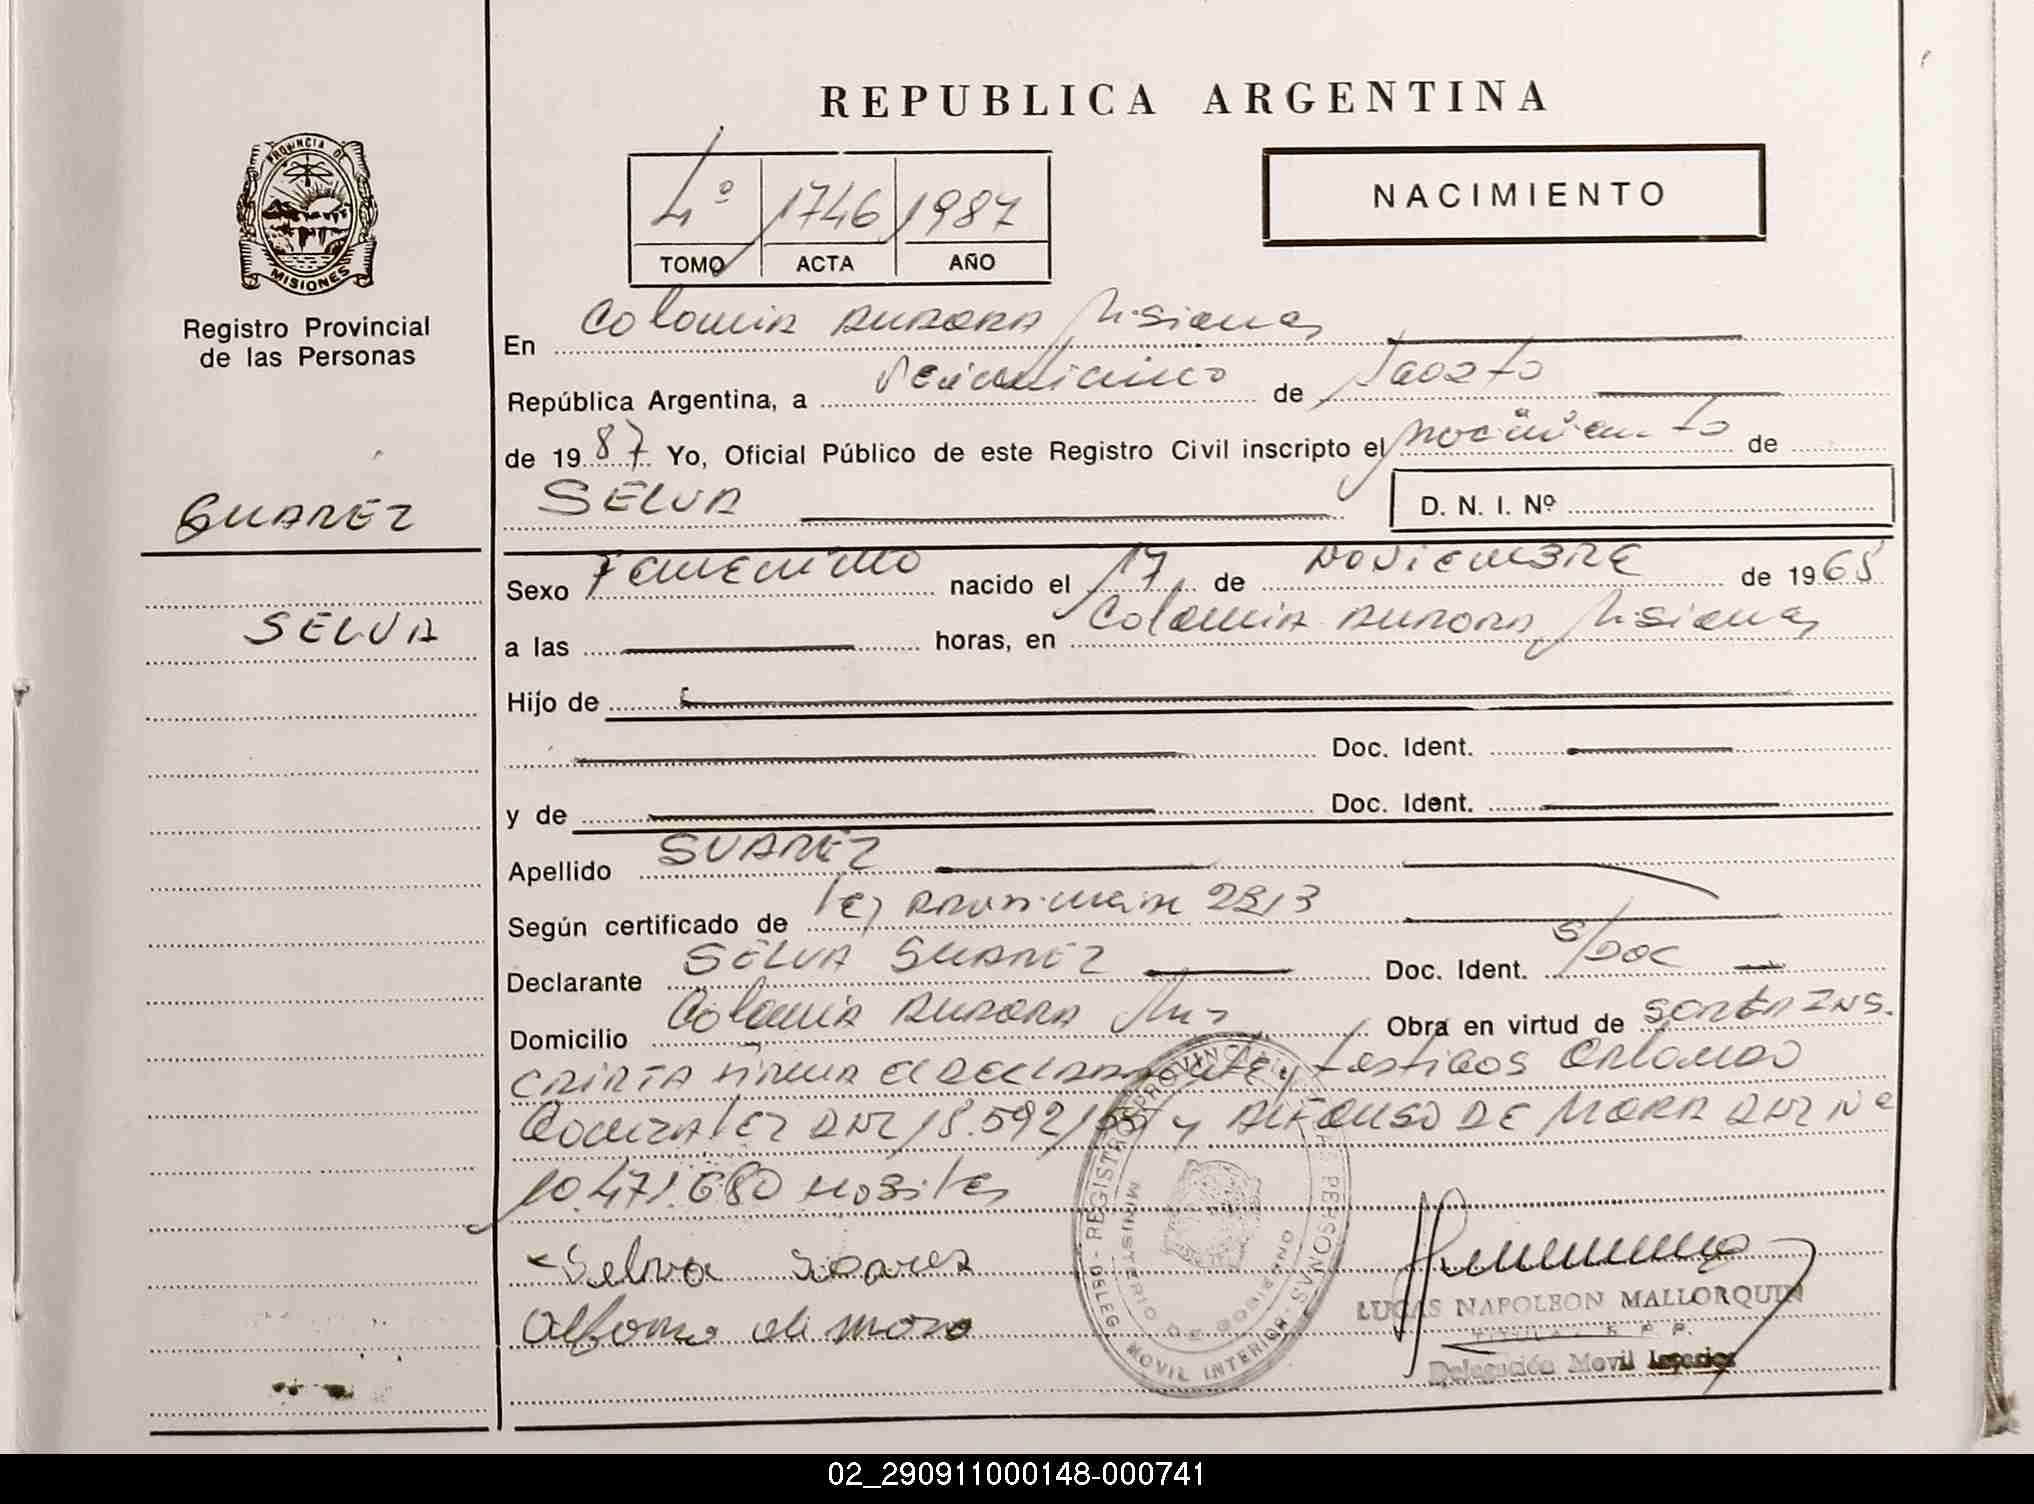 REPUBLICA ARGENTINA
PROVINCIA DE
MISIONES
Registro Provincial
de las Personas
4º 1746 1987
TOMO ACTA AÑO
NACIMIENTO
En Colonia Aurora Misiones
República Argentina, a veinticinco de Agosto
de 1987 Yo, Oficial Público de este Registro Civil inscripto el nacimiento de
SUAREZ
SELVA
D. N. I. Nº
Sexo Femenino nacido el 17 de Noviembre de 1968
SELVA
a las horas, en Colonia Aurora, Misiones
Hijo de
Doc. Ident.
y de Doc. Ident.
Apellido SUAREZ
Según certificado de ley Provincial 2213
Declarante SELVA SUAREZ Doc. Ident. S/DOC
Domicilio Colonia Aurora Mnes Obra en virtud de SOLTERA INS.
CRIPTA firma el declarante y testigos Orlando
Gonzalez DNI 18.592.155 y Alfonso DE MORA DNI Nº
10.471.680 Hábiles
Selva Soares
Alfonso de mora
REGISTRO PROVINCIAL DE LAS PERSONAS
MINISTERIO DE GOBIERNO
DELEG. MOVIL INTERIOR
LUCAS NAPOLEON MALLORQUIN
TITULAR R. P. P.
Delegación Movil Interior
02_290911000148-000741